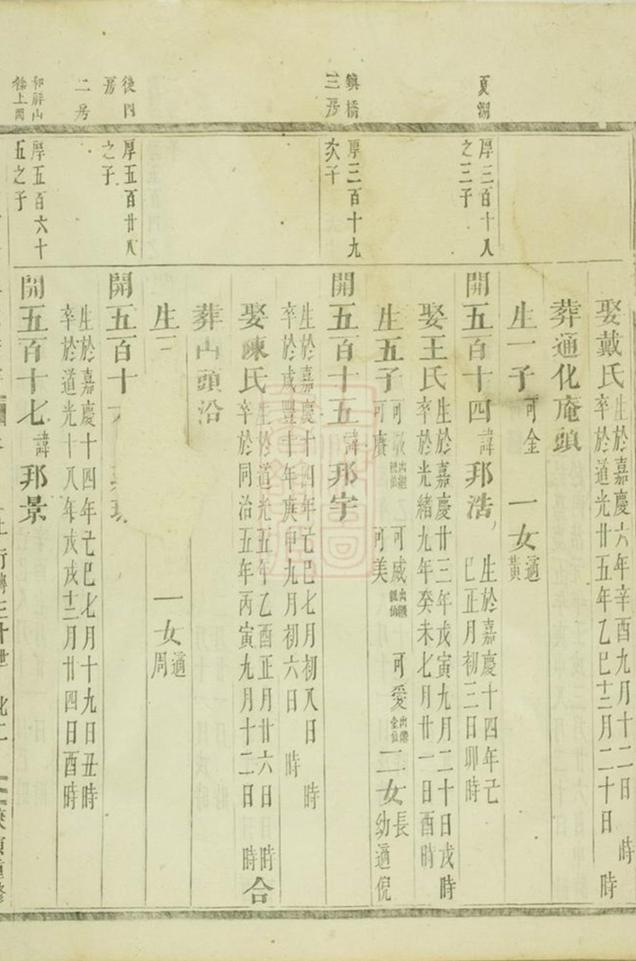 娶戴氏 生於嘉慶六年辛酉九月十二日 時
卒於道光廿五年乙巳十二月二十日 時
葬通化庵頭
生一子可金 一女適黃
夏湖
厚三百十八之三子
開五百十四諱邦浩 生於嘉慶十四年己巳正月初三日卯時
娶王氏 生於嘉慶廿三年戊寅九月二十日戌時
卒於光緒九年癸未七月廿一日酉時
生五子 可 可咸 可愛 二女長
可賡 可美 幼適倪
鎮橋三房
厚三百十九次子
開五百十五諱邦宇
生於嘉慶十四年己巳七月初八日 時
卒於咸豐十年庚申九月初六日 時
娶陳氏 生於道光五年乙酉正月廿六日 時
卒於同治五年丙寅九月十二日 時 合
葬山頭沿
生 一女適周
後四房
厚五百廿八之子
開五百十
二房
生於嘉慶十四年己巳七月十九日丑時
卒於道光十八年戊戌十二月廿四日酉時
厚五百六十五之子
開五百十七諱邦景